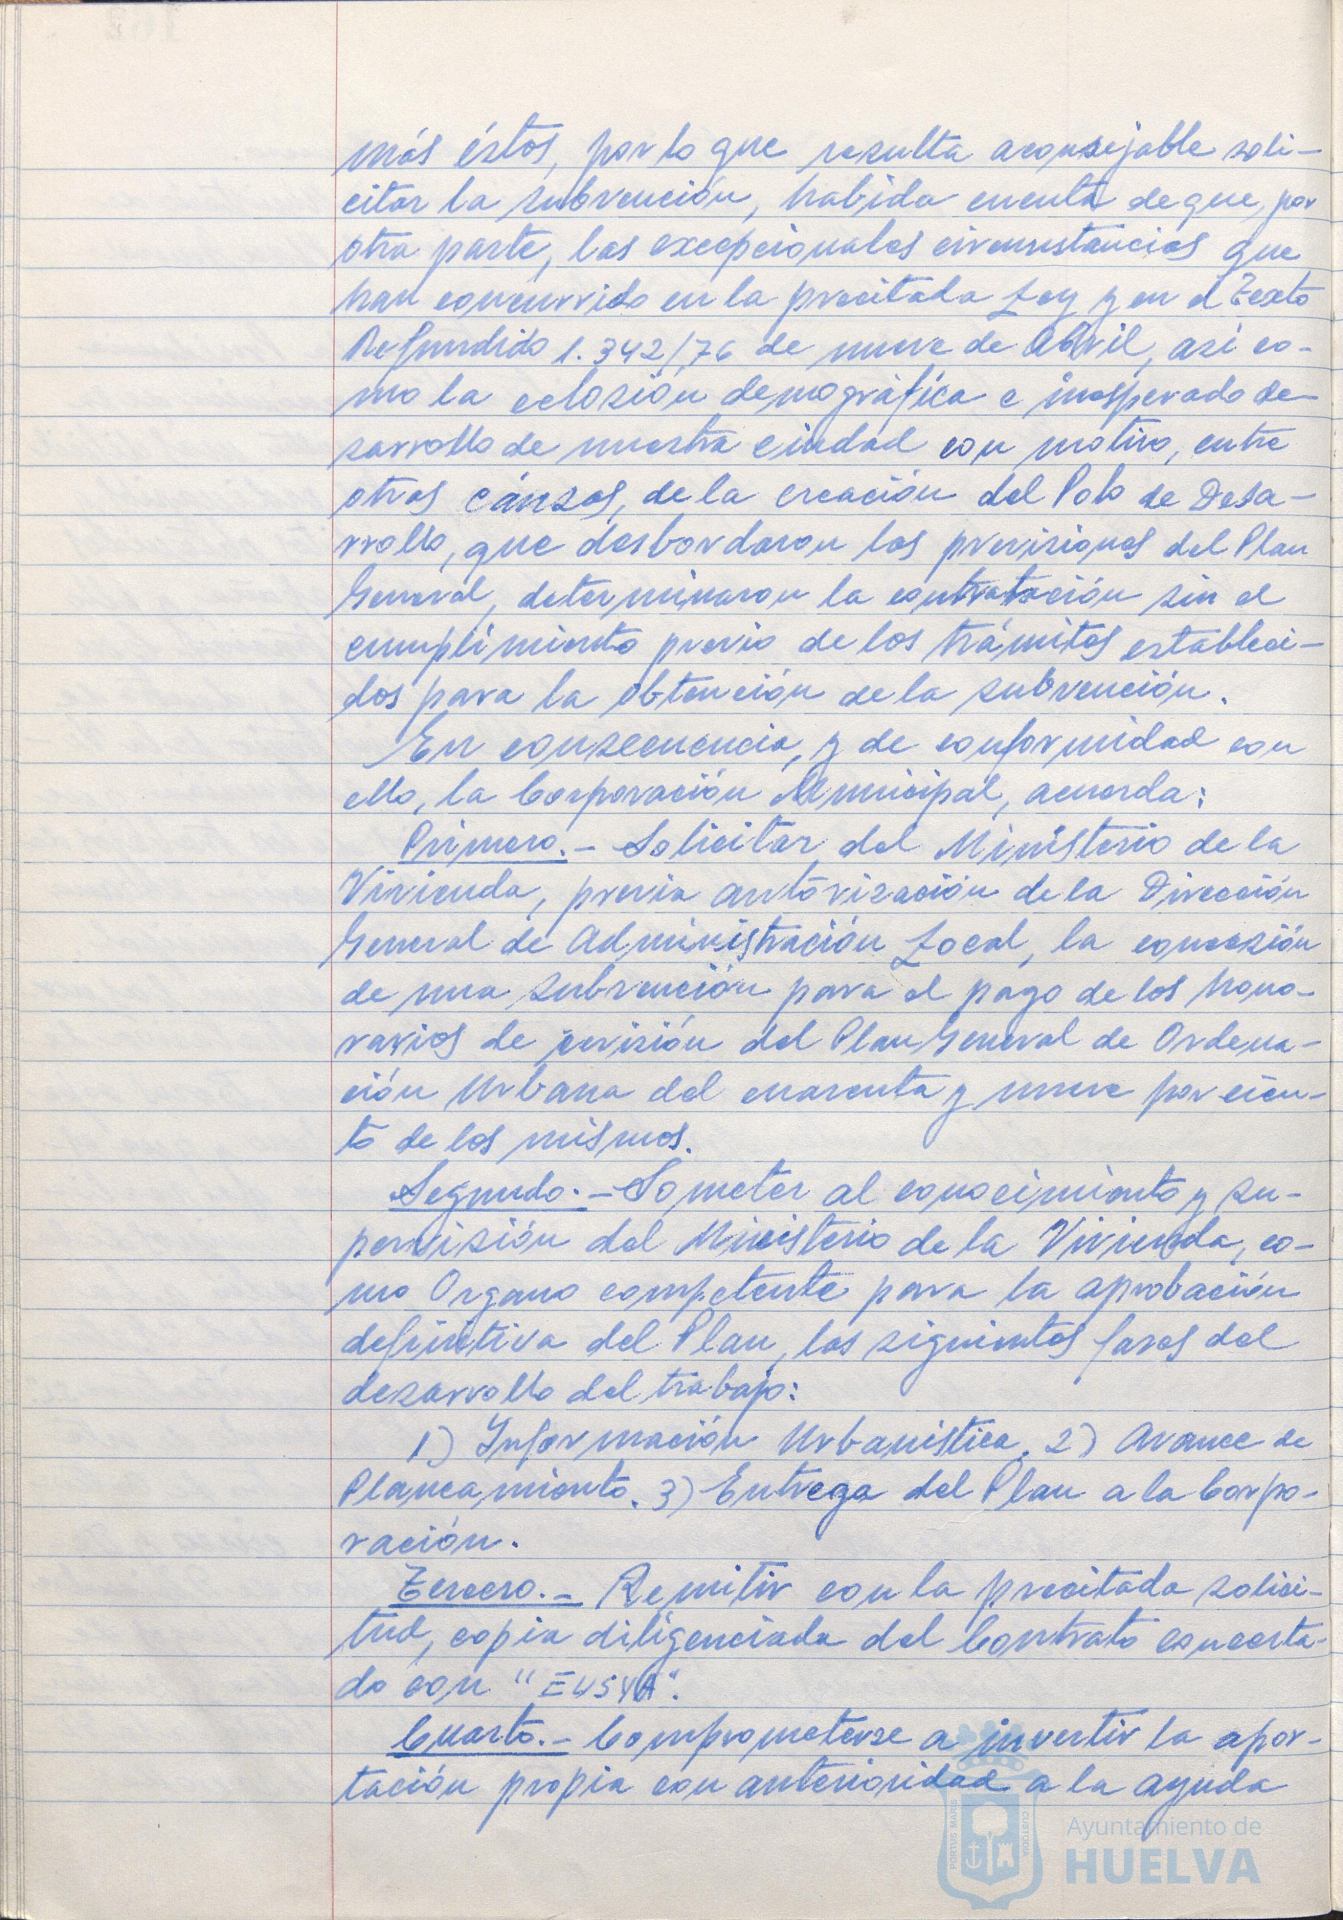 más éstos, por lo que resulta aconsejable soli-
citar la subvención, habida cuenta de que, por
otra parte, las excepcionales circunstancias que
han concurrido en la precitada Ley y en el Texto
Refundido 1.342/76 de nueve de Abril, así co-
mo la eclosión demográfica e inesperado de-
sarrollo de nuestra ciudad con motivo, entre
otras cáusas, de la creación del Polo de Desa-
rrollo, que desbordaron las previsiones del Plan
General, determinaron la contratación sin el
cumplimiento previo de los trámites estableci-
dos para la obtención de la subvención.
En consecuencia, y de conformidad con
ello, la Corporación Municipal, acuerda:
Primero.- Solicitar del Ministerio de la
Vivienda, previa autorización de la Dirección
General de Administración Local, la concesión
de una subvención para el pago de los hono-
rarios de revisión del Plan General de Ordena-
ción Urbana del cuarenta y nueve por cien-
to de los mismos.
Segundo.- Someter al conocimiento y su-
pervisión del Ministerio de la Vivienda, co-
mo Organo competente para la aprobación
definitiva del Plan, las siguientes fases del
desarrollo del trabajo:
1) Información Urbanistica. 2) Avance de
Planeamiento. 3) Entrega del Plan a la Corpo-
ración.
Tercero.- Remitir con la precitada solici-
tud, copia diligenciada del Contrato concerta-
do con "EUSYA".
Cuarto.- Comprometerse a invertir la apor-
tación propia con anterioridad a la ayuda
PORTUS MARIS
CUSTODIA
Ayuntamiento de
HUELVA